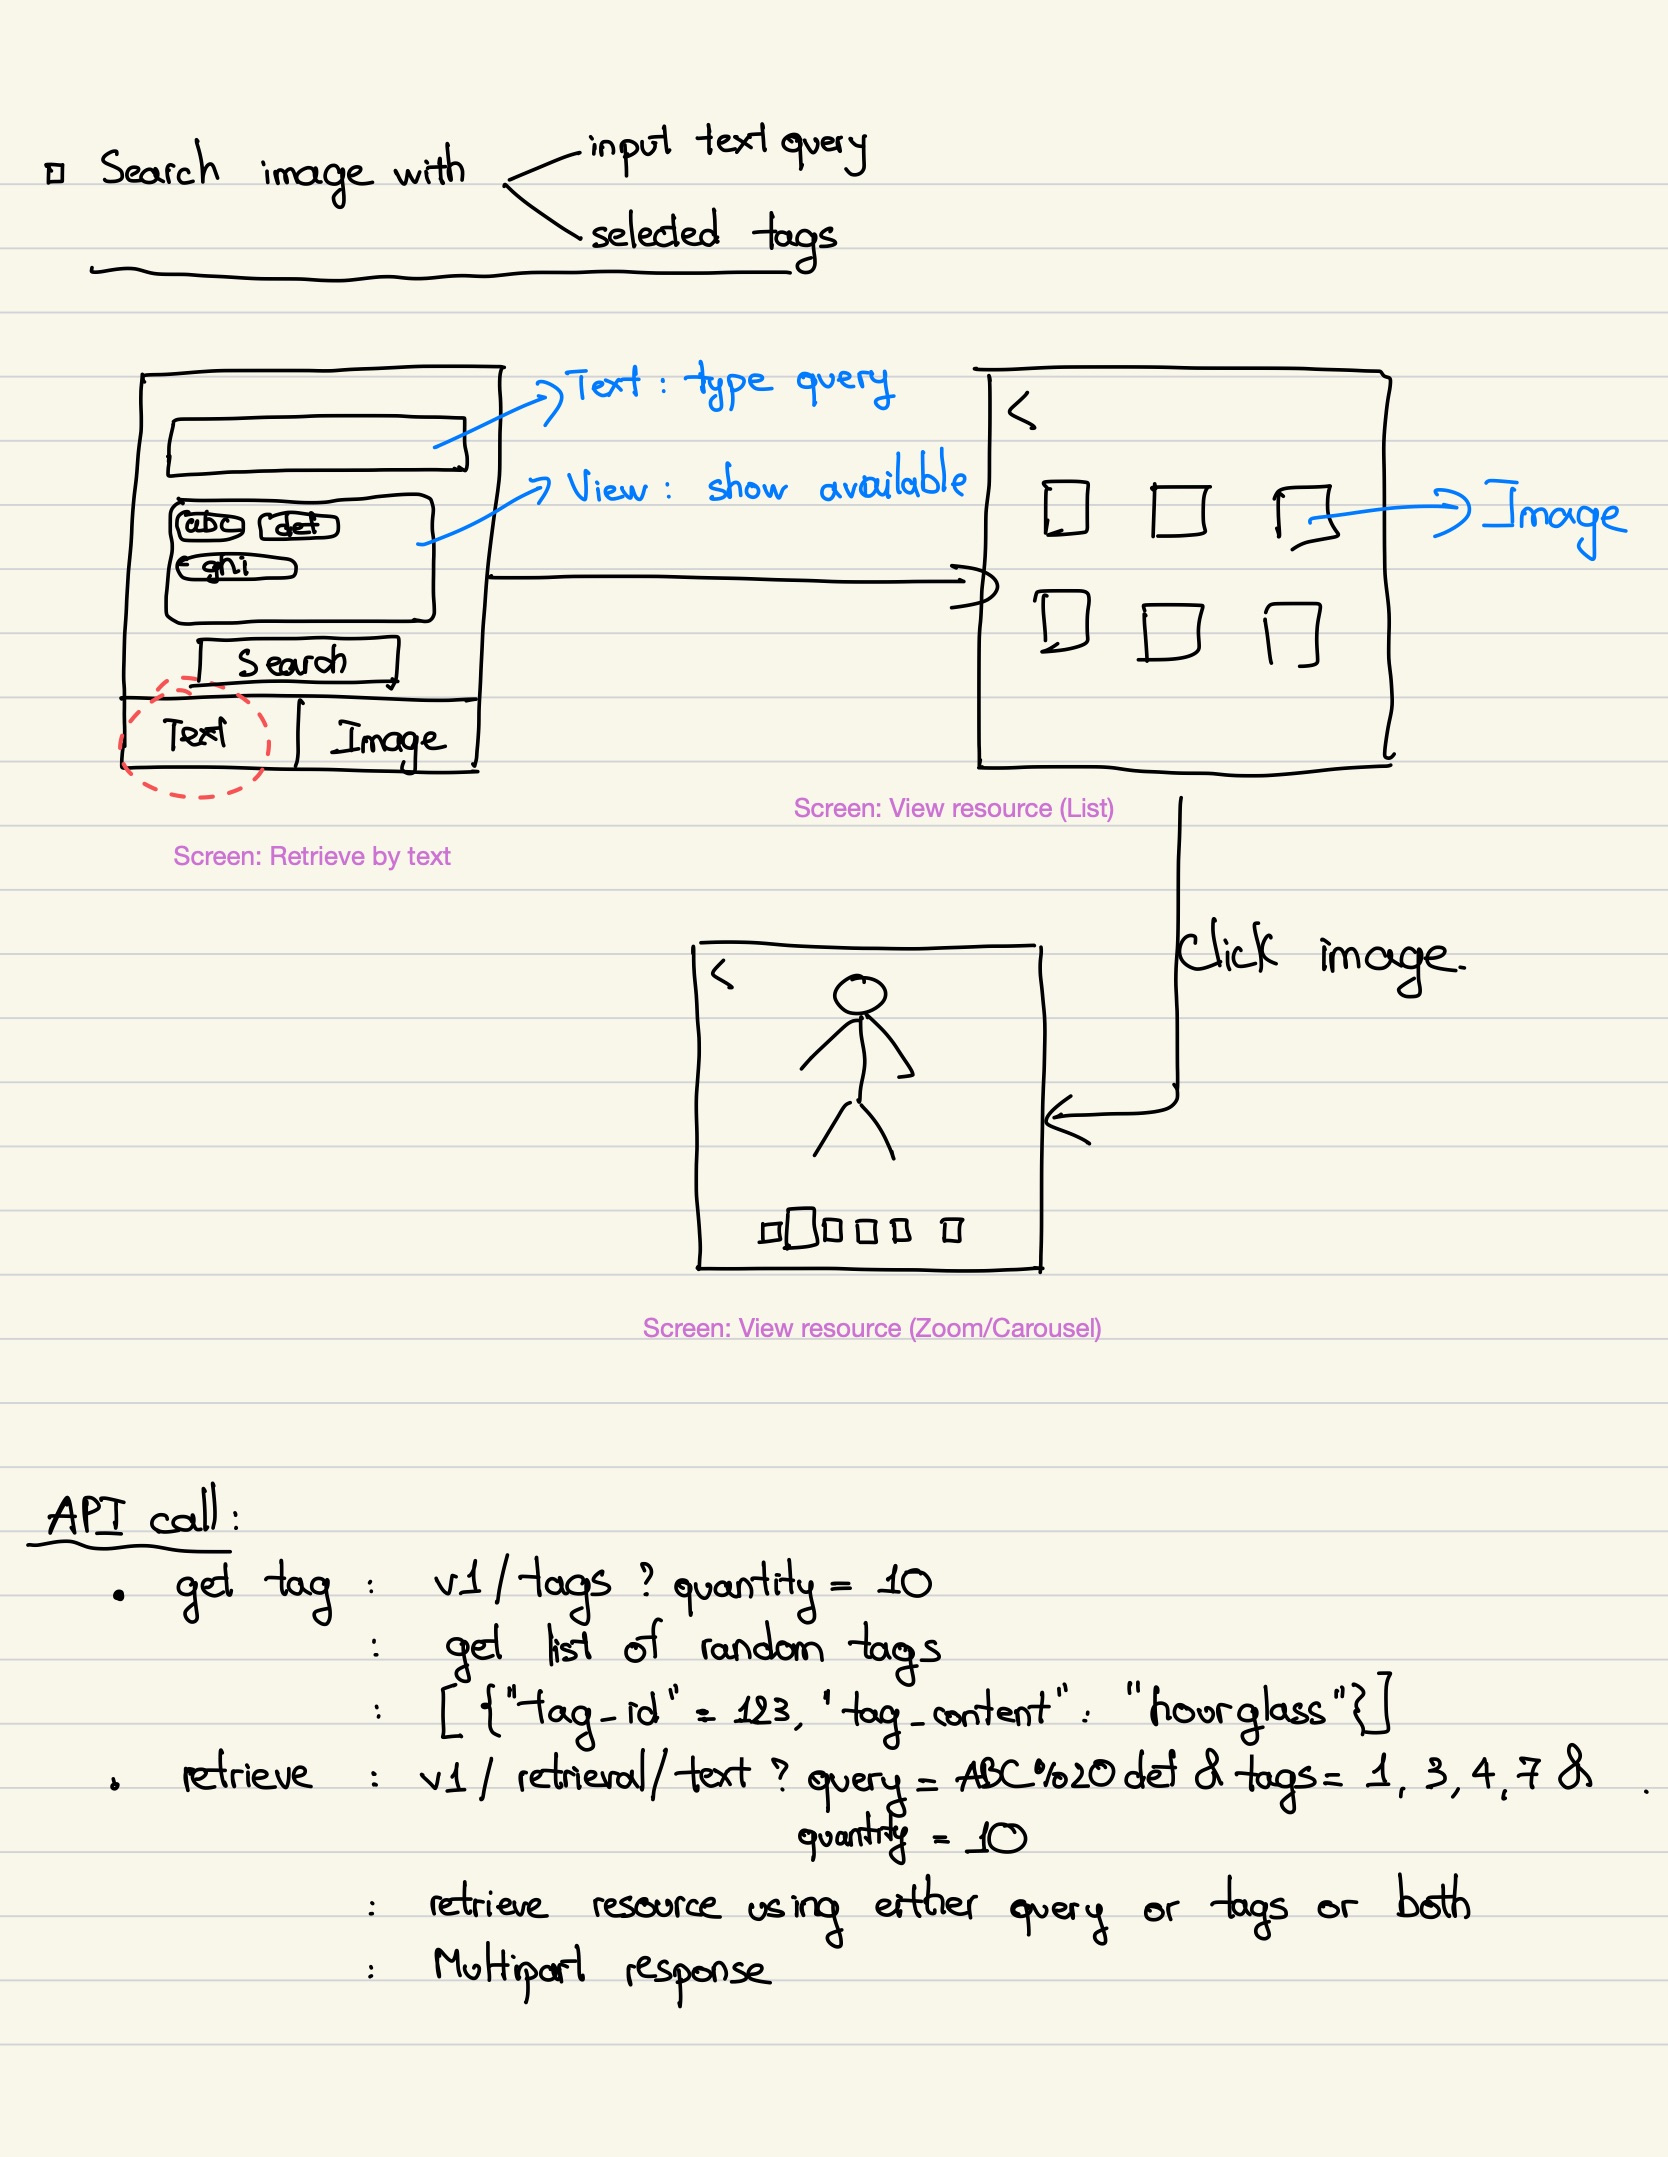 Search image with
input text query
selected tags
Text : type query
View : show available
abc def
ghi
Search
Text Image
<
Image
Screen: View resource (List)
Screen: Retrieve by text
Click image.
<
Screen: View resource (Zoom/Carousel)
API call :
• get tag : v1 / tags ? quantity = 10
: get list of random tags
: [ {"tag_id" = 123, "tag_content" : "hourglass"}]
• retrieve : v1 / retrieval / text ? query = ABC%20def & tags = 1, 3, 4, 7 &
quantity = 10
: retrieve resource using either query or tags or both
: Multipart response